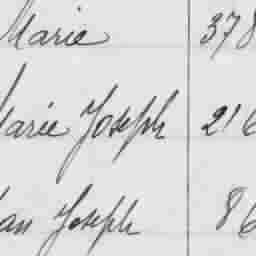 Marie 378
Marie Joseph 216
Jean Joseph 86